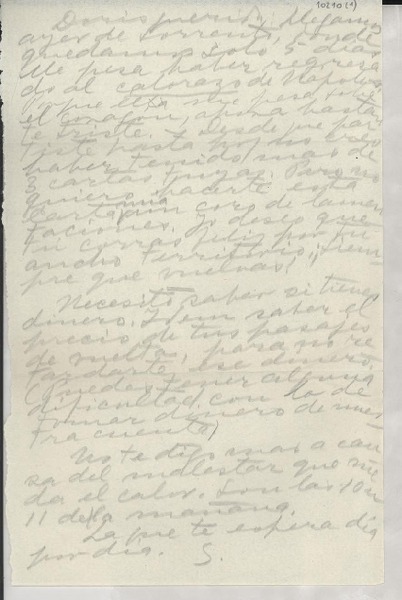 10210 (1)
Doris querida: Llegamos
ayer de Sorrento, donde
quedamos solo 5 días
Me pesa haber regresa
do al calorazo de Nápoles,
el corazón, ahora bastan
te triste. Y desde que par
tiste hasta hoy no creo
haber tenido mas de
3 cartas tuyas. Pero no
quiero hacerte esta
carta un coro de lamen
taciones. Yo deseo que
tu corras feliz por tu
ancho territorio, siem
pre que vuelvas!
Necesito saber si tienes
dinero. Item saber el
precio de tus pasajes
de vuelta, para no re
tardarte ese dinero.
(Puedes tener alguna
dificultad con lo de
tomar dinero de nues
tra cuenta)
No te digo mas a cau
sa del malestar que me
da el calor. Son las 10 u
11 de la mañana.
La que te espera día
por día. S.